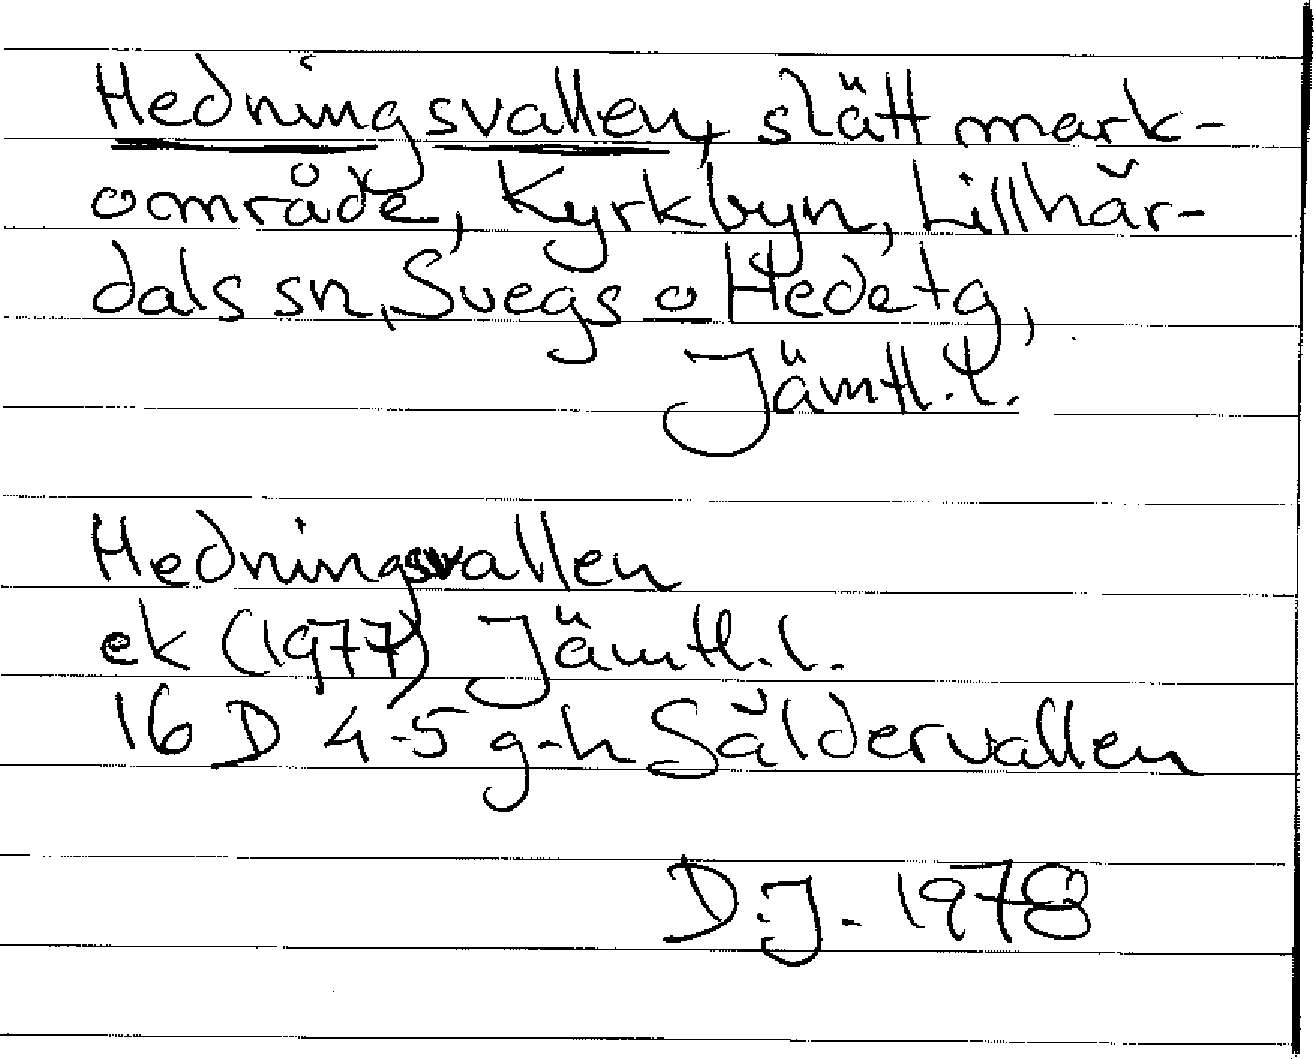 Hedningsvallen, slättmark-
område, Kyrkbyn, Lillhär-
dals sn, Svegs o Hede tg,
Jämtl. l.
Hedningsvallen
ek (1977) Jämtl. l.
16 D 4-5 g-h Säldervallen
D.J. 1978